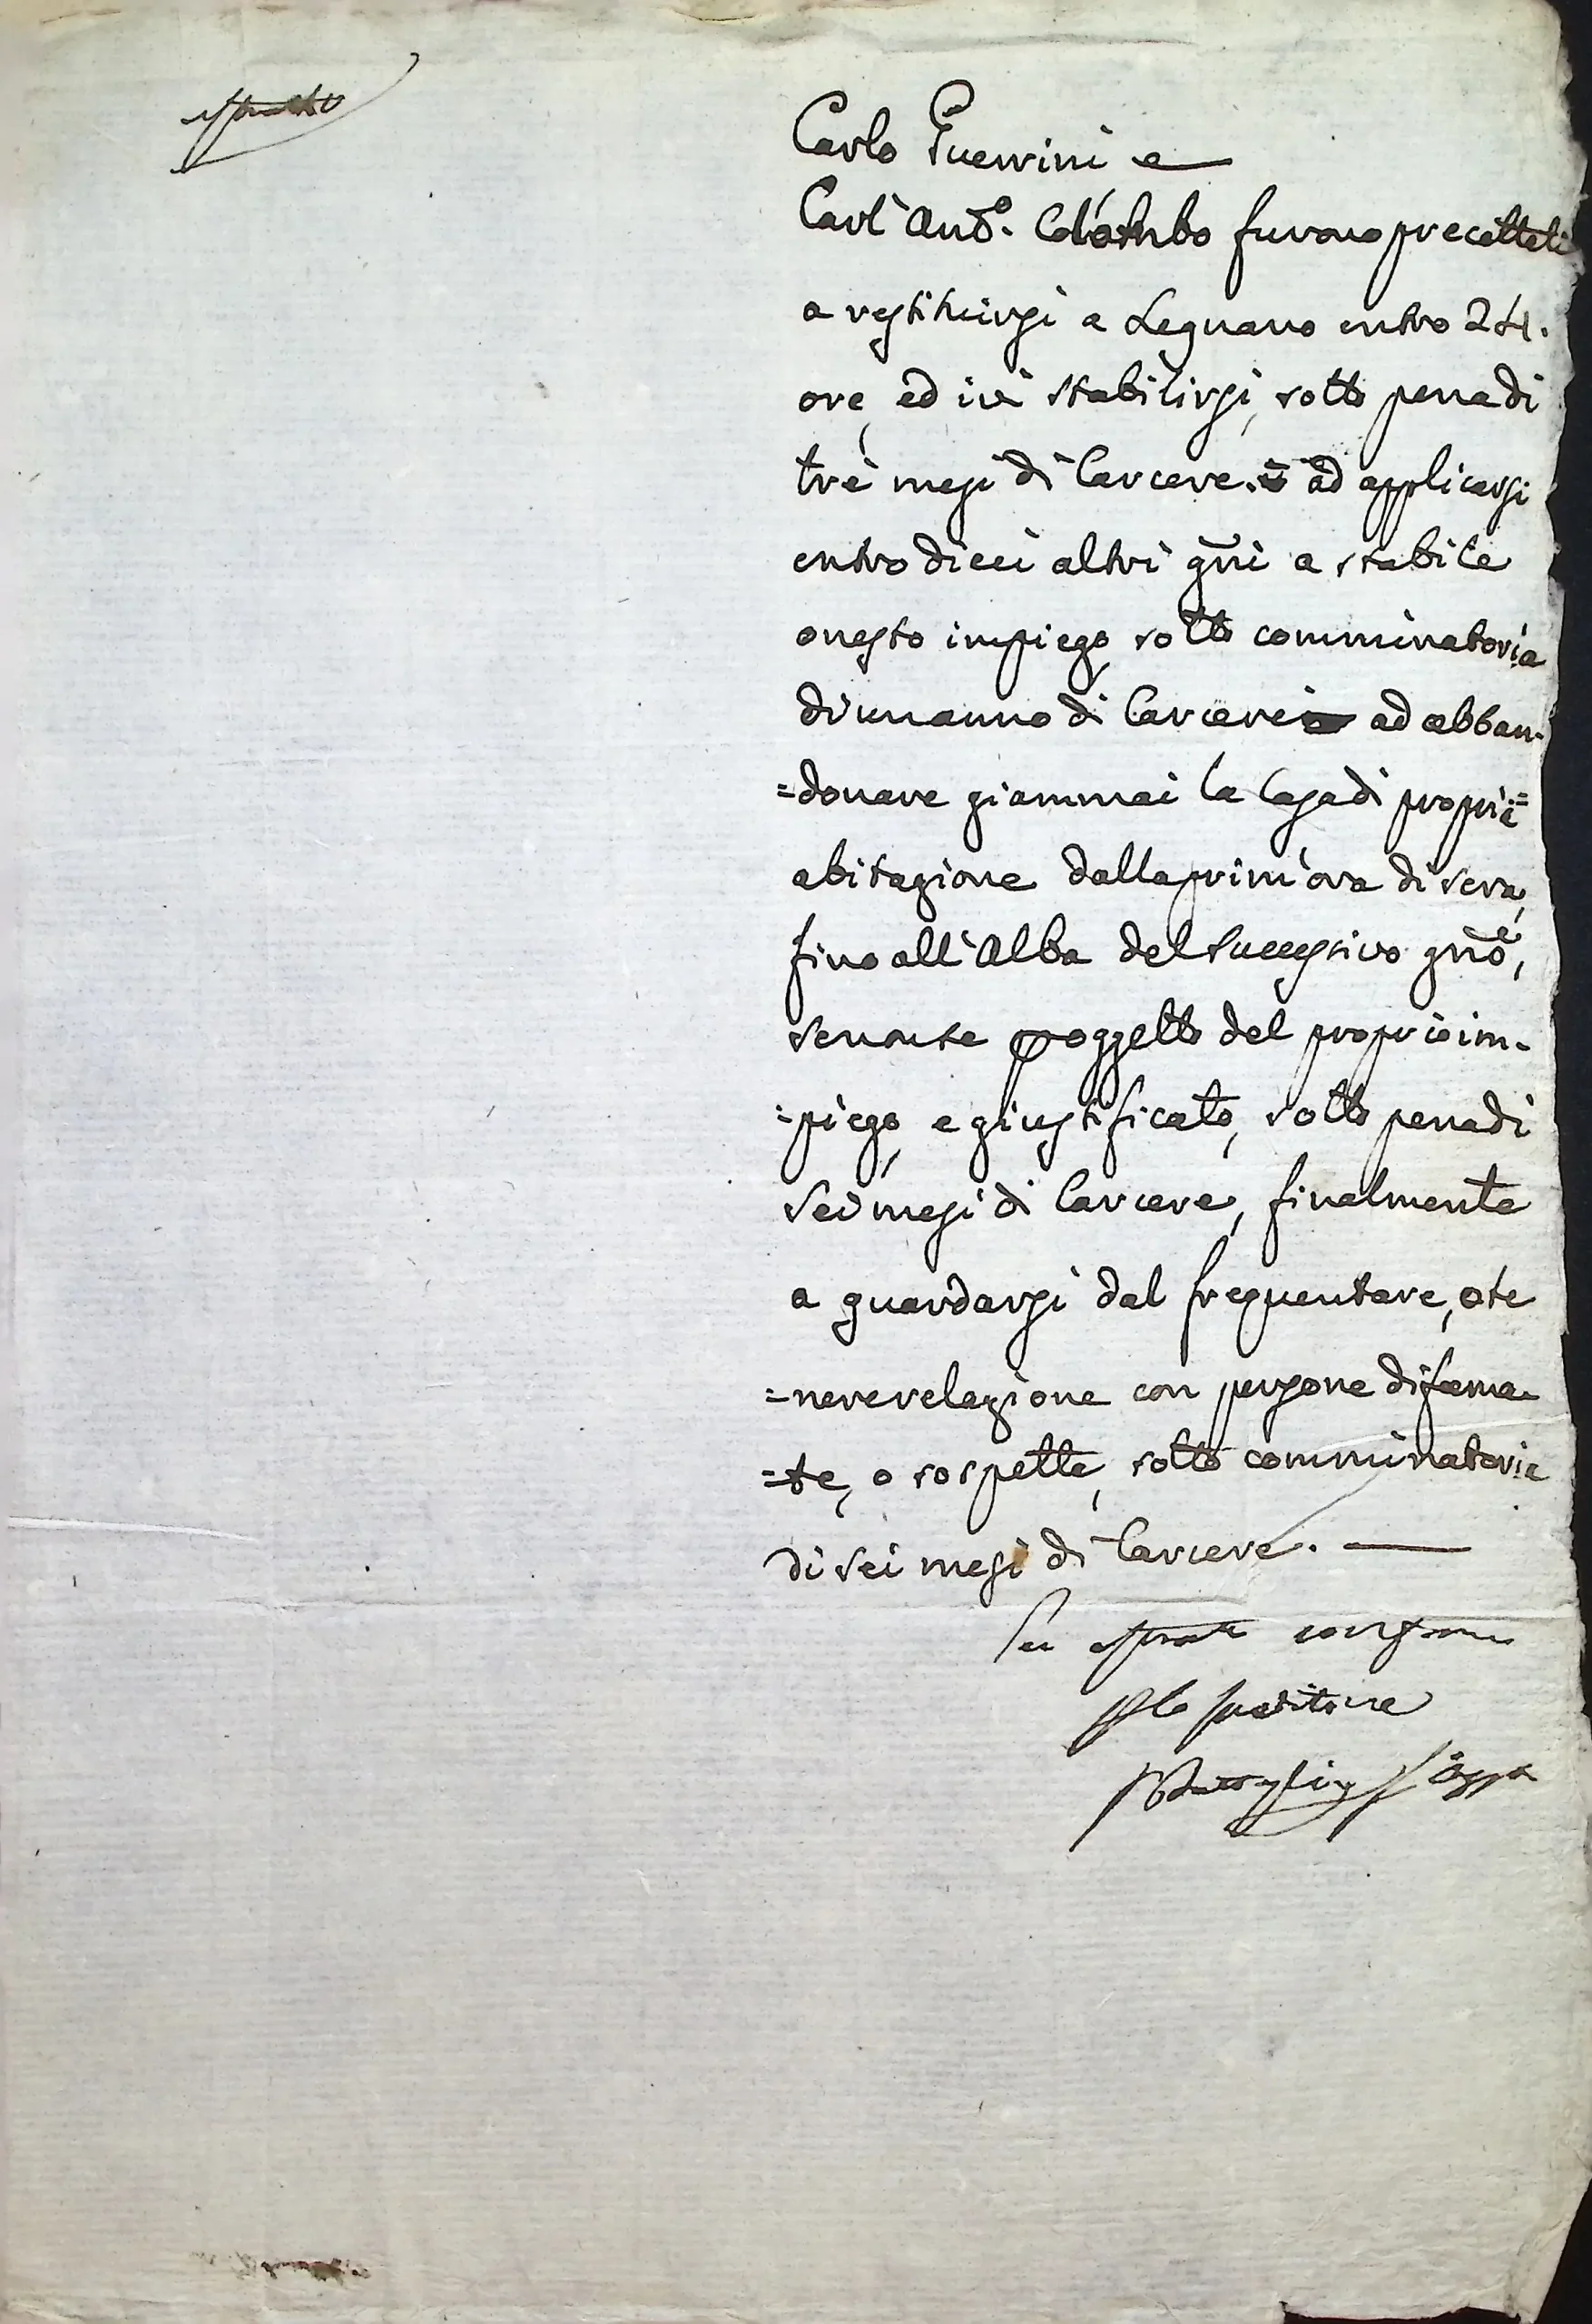 estratto
Carlo Guerrini e
Carl'Ant.o Colombo furono precettati
a restituirsi a Legnano entro 24.
ore, ed ivi stabilirsi, sotto pena di
trè mesi di Carcere. ad applicarsi
entro dieci altri gñi a stabile
onesto impiego, sotto comminatoria
di un anno di Carcere ad abban-
=donare giammai la Casa di propria
abitazione dalla prim'ora di sera,
fino all'Alba del successivo gñõ,
senonse oggetto del proprio im-
=piego, e giustificato, sotto pena di
sei mesi di Carcere, finalmente
a guardarsi dal frequentare, o te
=nere relazione con persone difama-
=te, o sospette, sotto comminatoria
di sei mesi di Carcere.
Per estratto conforme